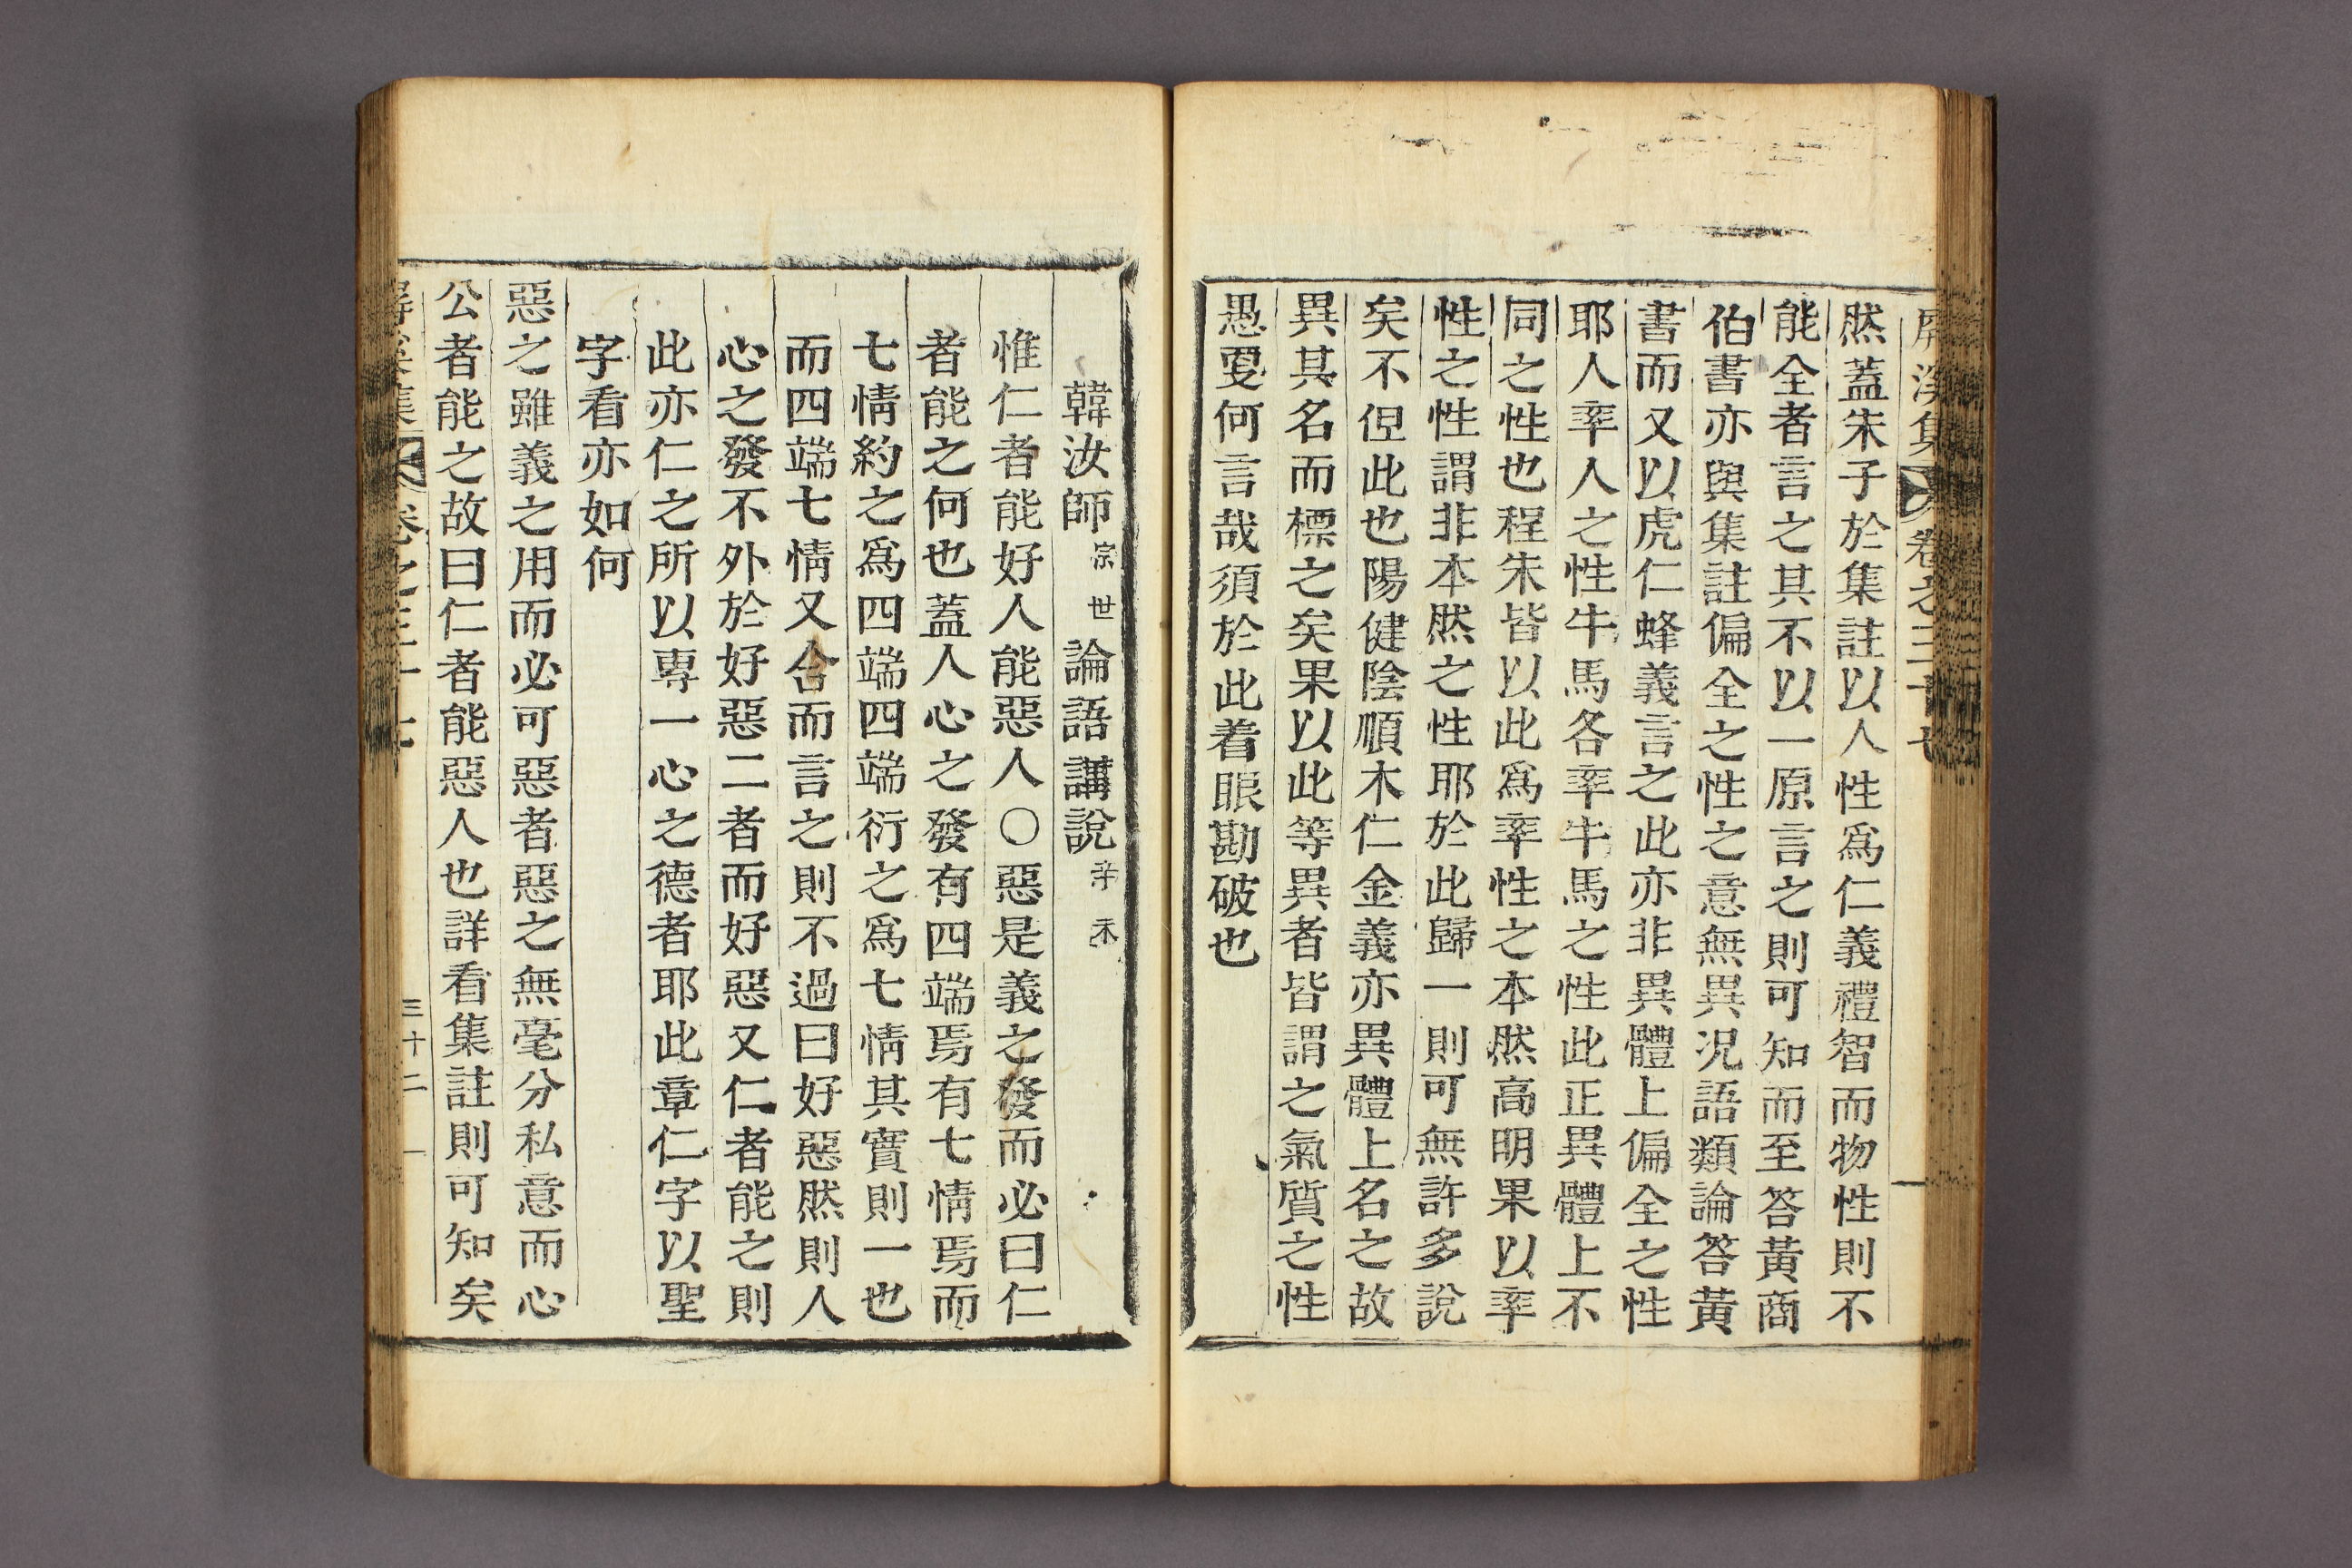 屏溪集 卷之三十七
然蓋朱子於集註以人性爲仁義禮智而物性則不
能全者言之其不以一原言之則可知而至答黃商
伯書亦與集註偏全之性之意無異况語類論答黃
書而又以虎仁蜂義言之此亦非異體上偏全之性
耶人率人之性牛馬各率牛馬之性此正異體上不
同之性也程朱皆以此爲率性之本然高明果以率
性之性謂非本然之性耶於此歸一則可無許多說
矣不但此也陽健陰順木仁金義亦異體上名之故
異其名而標之矣果以此等異者皆謂之氣質之性
愚更何言哉須於此着眼勘破也
韓汝師宗世論語講說辛未
惟仁者能好人能惡人〇惡是義之發而必曰仁
者能之何也蓋人心之發有四端焉有七情焉而
七情約之爲四端四端衍之爲七情其實則一也
而四端七情又合而言之則不過曰好惡然則人
心之發不外於好惡二者而好惡又仁者能之則
此亦仁之所以專一心之德者耶此章仁字以聖
字看亦如何
惡之雖義之用而必可惡者惡之無毫分私意而心
公者能之故曰仁者能惡人也詳看集註則可知矣
屏溪集 卷之三十七 三十二